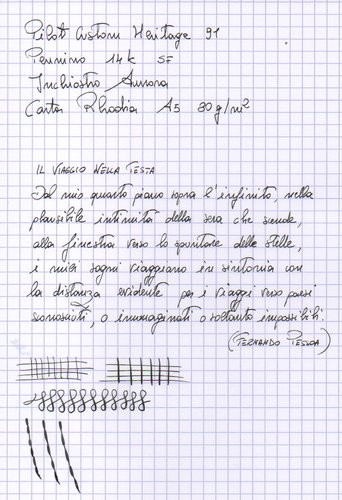 Pilot Custom Heritage 91
Pennino 14k SF
Inchiostro Aurora
Carta Rhodia A5 80g/m²
IL VIAGGIO NELLA TESTA
Dal mio quarto piano sopra l'infinito, nella
plausibile intimità della sera che scende,
alla finestra verso lo spuntare delle stelle,
i miei sogni viaggiano in sintonia con
la distanza evidente per i viaggi verso paesi
sconosciuti, o immaginati o soltanto impossibili.
(FERNANDO PESSOA)